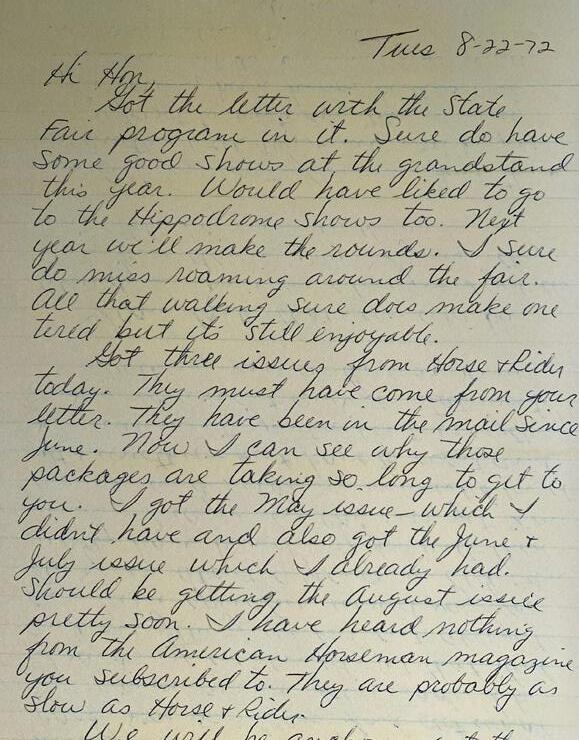 Tues 8-22-72
Hi Hon,
Got the letter with the State
Fair program in it. Sure do have
some good shows at the grandstand
this year. Would have liked to go
to the Hippodrome shows too. Next
year we'll make the rounds. I sure
do miss roaming around the fair.
All that walking sure does make one
tired but it's still enjoyable.
Got three issues from Horse & Rider
today. They must have come from your
letter. They have been in the mail since
June. Now I can see why those
packages are taking so long to get to
you. I got the May issue - which I
didn't have and also got the June &
July issue which I already had.
Should be getting the August issue
pretty soon. I have heard nothing
from the American Horseman magazine
you subscribed to. They are probably as
slow as Horse & Rider.
We will be